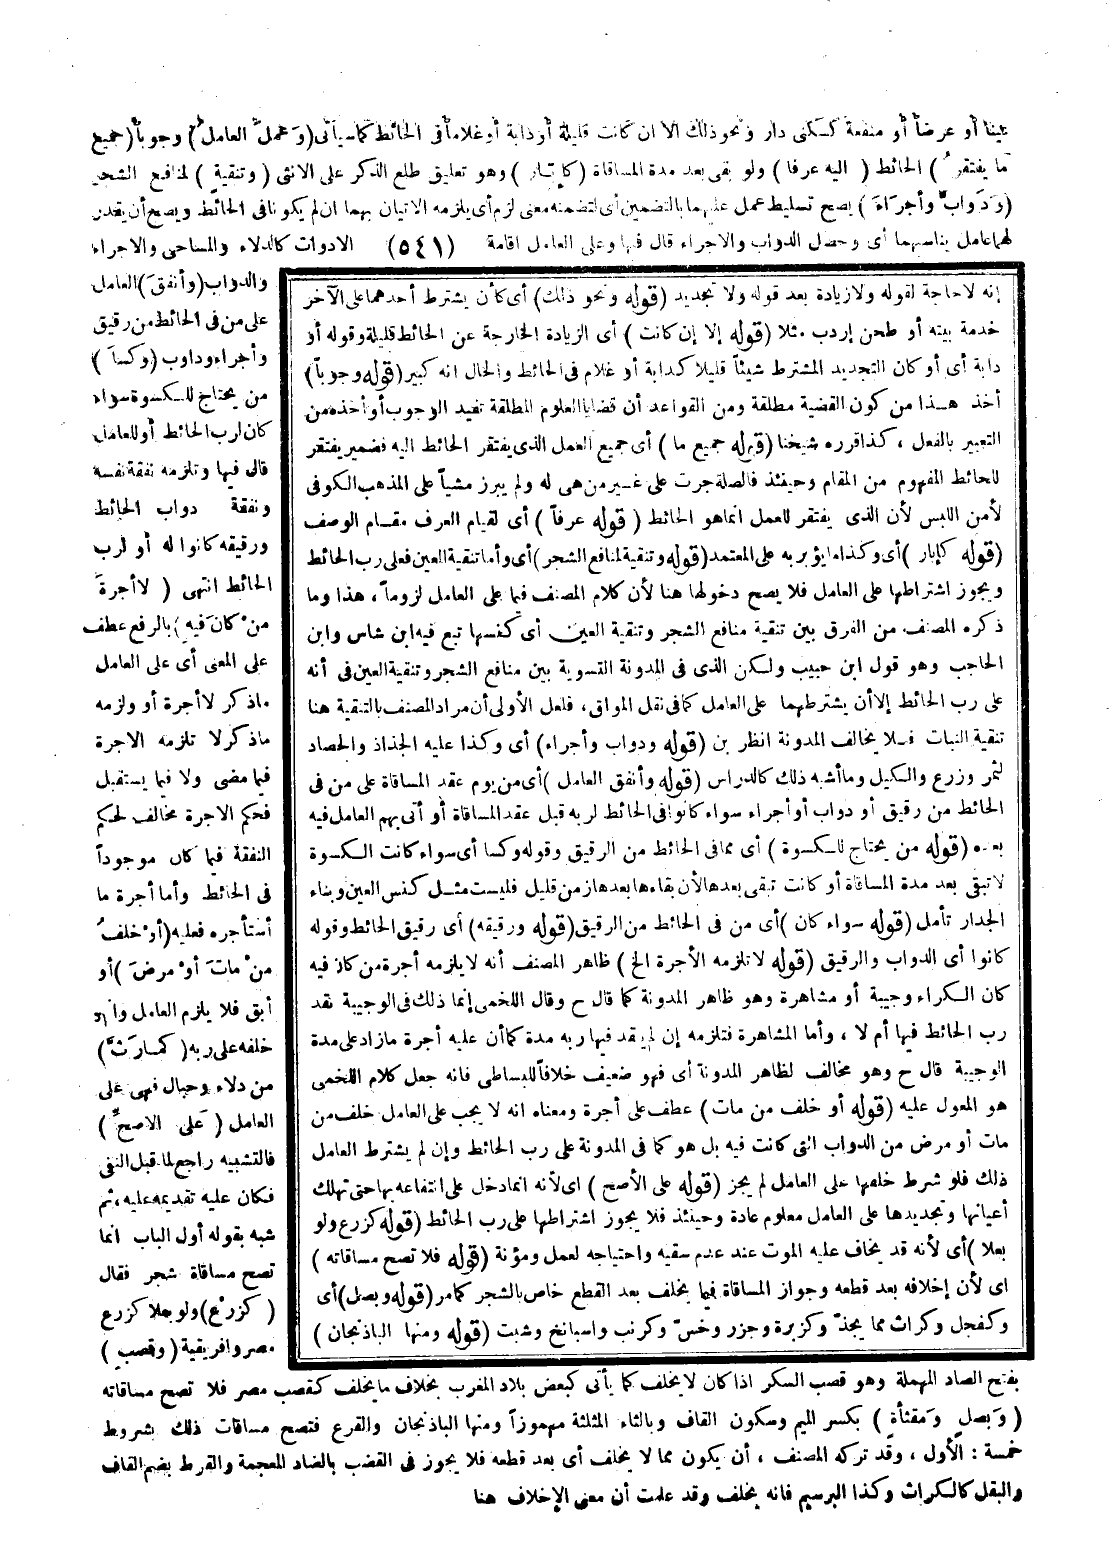 عينا أو عرضاً أو منفعة كسكنى دار ونحو ذلك الا ان كانت قليلة أو دابة أو غلاماً في الحائط كما سيأتى (وَعَملَ العامل) وجوباً (جميع
ما يفتقر) الحائط (اليه عرفا) ولو بقى بعد مدة المساقاة (كإبَار) وهو تعليق طلع الذكر على الانثى (وتنقية) لمنافع الشجر
(وَدَوابَّ وأجَراءَ) يصح تسليط عمل عليهما بالتضمين أى لتضمنه معنى لزم أى يلزمه الاتيان بهما ان لم يكونا فى الحائط ويصح أن يقدر
لهما عامل يناسبهما أى وحصل الدواب والاجراء قال فيها وعلى العامل اقامة (٥٤١) الادوات كالدلاء والمساحى والاجراء
والدواب (وأنفقَ) العامل
على من فى الحائط من رقيق
وأجراء ودواب (وكساَ)
من يحتاج للكسوة سواء
كان لرب الحائط أو للعامل
قال فيها وتلزمه نفقة نفسه
ونفقة دواب الحائط
ورقيقه كانوا له أو لرب
الحائط انتهى (لا أجرةَ
منْ كانَ فيه) بالرفع عطف
على المعنى أى على العامل
ماذكر لا أجرة أو ولزمه
ماذكر لا تلزمه الاجرة
فيما مضى ولا فيما يستقبل
فحكم الاجرة مخالف لحكم
النفقة فيما كان موجوداً
فى الحائط وأما أجرة ما
أستأجره فعليه (أوْ خلفُ
منْ ماتَ أوْ مرضَ) أو
أبق فلا يلزم العامل وانما
خلفه على ربه (كمارَثَّ)
من دلاء وحبال فهى على
العامل (عَلى الاصحِّ)
فالتشبيه راجع لما قبل النفى
فكان عليه تقديمه عليه، ثم
شبه بقوله أول الباب انما
تصح مساقاة شجر فقال
(كزرْع) ولو بعلا كزرع
مصر وافريقية (وقصبٍ)
إنه لاحاجة لقوله ولا زيادة بعد قوله ولا تجديد (قوله ونحو ذلك) أى كأن يشترط أحدهما على الآخر
خدمة بيته أو طحن إردب مثلا (قوله إلا إن كانت) أى الزيادة الخارجة عن الحائط قليلة وقوله أو
دابة أى أو كان التجديد المشترط شيئاً قليلا كدابة أو غلام فى الحائط والحال انه كبير (قوله وجوباً)
أخذ هـذا من كون القضية مطلقة ومن القواعد أن قضايا العلوم المطلقة تفيد الوجوب أو أخذه من
التعبير بالفعل ، كذا قرره شيخنا (قوله جميع ما) أى جميع العمل الذى يفتقر الحائط اليه فضمير يفتقر
للحائط المفهوم من المقام وحينئذ فالصلة جرت على غـير من هى له ولم يبرز مشياً على المذهب الكوفى
لأمن اللبس لأن الذى يفتقر للعمل انما هو الحائط (قوله عرفاً) أى لقيام العرف مقـام الوصف
(قوله كإبار) أى وكذا ما يؤبر به على المعتمد (قوله وتنقية لمنافع الشجر) أى وأما تنقية العين فعلى رب الحائط
ويجوز اشتراطها على العامل فلا يصح دخولها هنا لأن كلام المصنف فيما على العامل لزوماً، هذا وما
ذكره المصنف من الفرق بين تنقية منافع الشجر وتنقية العين أى كنسها تبع فيه ابن شاس وابن
الحاجب وهو قول ابن حبيب ولكن الذى فى المدونة التسوية بين منافع الشجر وتنقية العين فى أنه
على رب الحائط إلا أن يشترطهما على العامل كما فى نقل المواق، فلعل الأولى أن مراد المصنف بالتنقية هنا
تنقية النبات فـلا يخالف المدونة انظر بن (قوله ودواب وأجراء) أى وكذا عليه الجذاذ والحصاد
لثمر وزرع والكيل وما أشبه ذلك كالدراس (قوله وأنفق العامل) أى من يوم عقد المساقاة على من فى
الحائط من رقيق أو دواب أو أجراء سواء كانوا فى الحائط لربه قبل عقد المساقاة أو أتى بهم العامل فيه
بعده (قوله من يحتاج للكسوة) أى مما فى الحائط من الرقيق وقوله وكسا أى سواء كانت الكسوة
لا تبقى بعد مدة المساقاة أو كانت تبقى بعدها لأن بقاءها بعدها زمن قليل فليست مثـل كنس العين وبناء
الجدار تأمل (قوله سواء كان) أى من فى الحائط من الرقيق (قوله ورقيقه) أى رقيق الحائط وقوله
كانوا أى الدواب والرقيق (قوله لا تلزمه الأجرة الخ) ظاهر المصنف أنه لا يلزمه أجرة من كان فيه
كان الكراء وجيبة أو مشاهرة وهو ظاهر المدونة كما قال ح وقال اللخمى إنما ذلك فى الوجيبة نقد
رب الحائط فيها أم لا ، وأما المشاهرة فتلزمه إن لم ينقد فيها ربه مدة كما أن عليه أجرة مازاد على مدة
الوجيبة قال ح وهو مخالف لظاهر المدونة أى فهو ضعيف خلافاً للبساطى فانه جعل كلام اللخمى
هو المعول عليه (قوله أو خلف من مات) عطف على أجرة ومعناه انه لا يجب على العامل خلف من
مات أو مرض من الدواب التى كانت فيه بل هو كما فى المدونة على رب الحائط وإن لم يشترط العامل
ذلك فلو شرط خلفها على العامل لم يجز (قوله على الأصح) اى لأنه انما دخل على انتفاعه بها حتى تهلك
أعيانها وتجديدها على العامل معلوم عادة وحينئذ فلا يجوز اشتراطها على رب الحائط (قوله كزرع ولو
بعلا) أى لأنه قد يخاف عليه الموت عند عدم سقيه واحتياجه لعمل ومؤنة (قوله فلا تصح مساقاته)
اى لأن إخلافه بعد قطعه وجواز المساقاة فيما يخلف بعد القطع خاص بالشجر كما مر (قوله وبصل) أى
وكفجل وكراث مما يجذّ وكزبرة وجزر وخسّ وكرنب واسبانخ وشبت (قوله ومنها الباذنجان)
بفتح الصاد المهملة وهو قصب السكر اذا كان لا يخلف كما يأتى كبعض بلاد المغرب بخلاف ما يخلف كقصب مصر فلا تصح مساقاته
(وَبصلٍ وَمقثأةٍ) بكسر الميم وسكون القاف وبالثاء المثلثة مهموزاً ومنها الباذنجان والقرع فتصح مساقات ذلك بشروط
خمسة : الأول ، وقد تركه المصنف ، أن يكون مما لا يخلف أى بعد قطعه فلا يجوز فى القضب بالضاد المعجمة والقرط بضم القاف
والبقل كالكراث وكذا البرسيم فانه يخلف وقد علمت أن معنى الإخلاف هنا